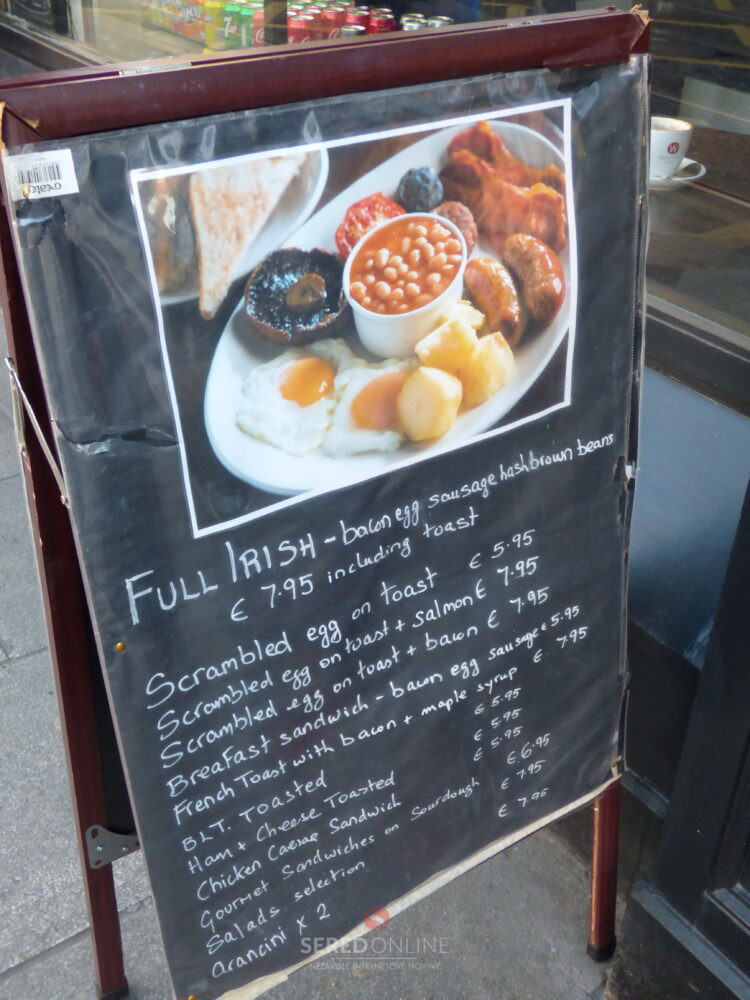 create
FULL IRISH - bacon egg sausage hashbrown beans
€ 7.95 including toast
Scrambled egg on toast € 5.95
Scrambled egg on toast + salmon € 7.95
Scrambled egg on toast + bacon € 7.95
Breafast sandwich - bacon egg sausage € 5.95
French Toast with bacon + maple syrup € 7.95
BLT. Toasted € 5.95
Ham + Cheese Toasted € 5.95
Chicken Caesar Sandwich € 5.95
Gourmet Sandwiches on Sourdough € 6.95
Salads selection € 7.95
arancini x 2 € 7.95
SEREDONLINE
NEZÁVISLÉ INTERNETOVÉ NOVINY